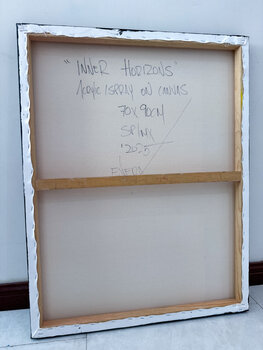 "INNER HORIZONS"
ACRYLIC/SPRAY ON CANVAS
70X90CM
SP/
'2025